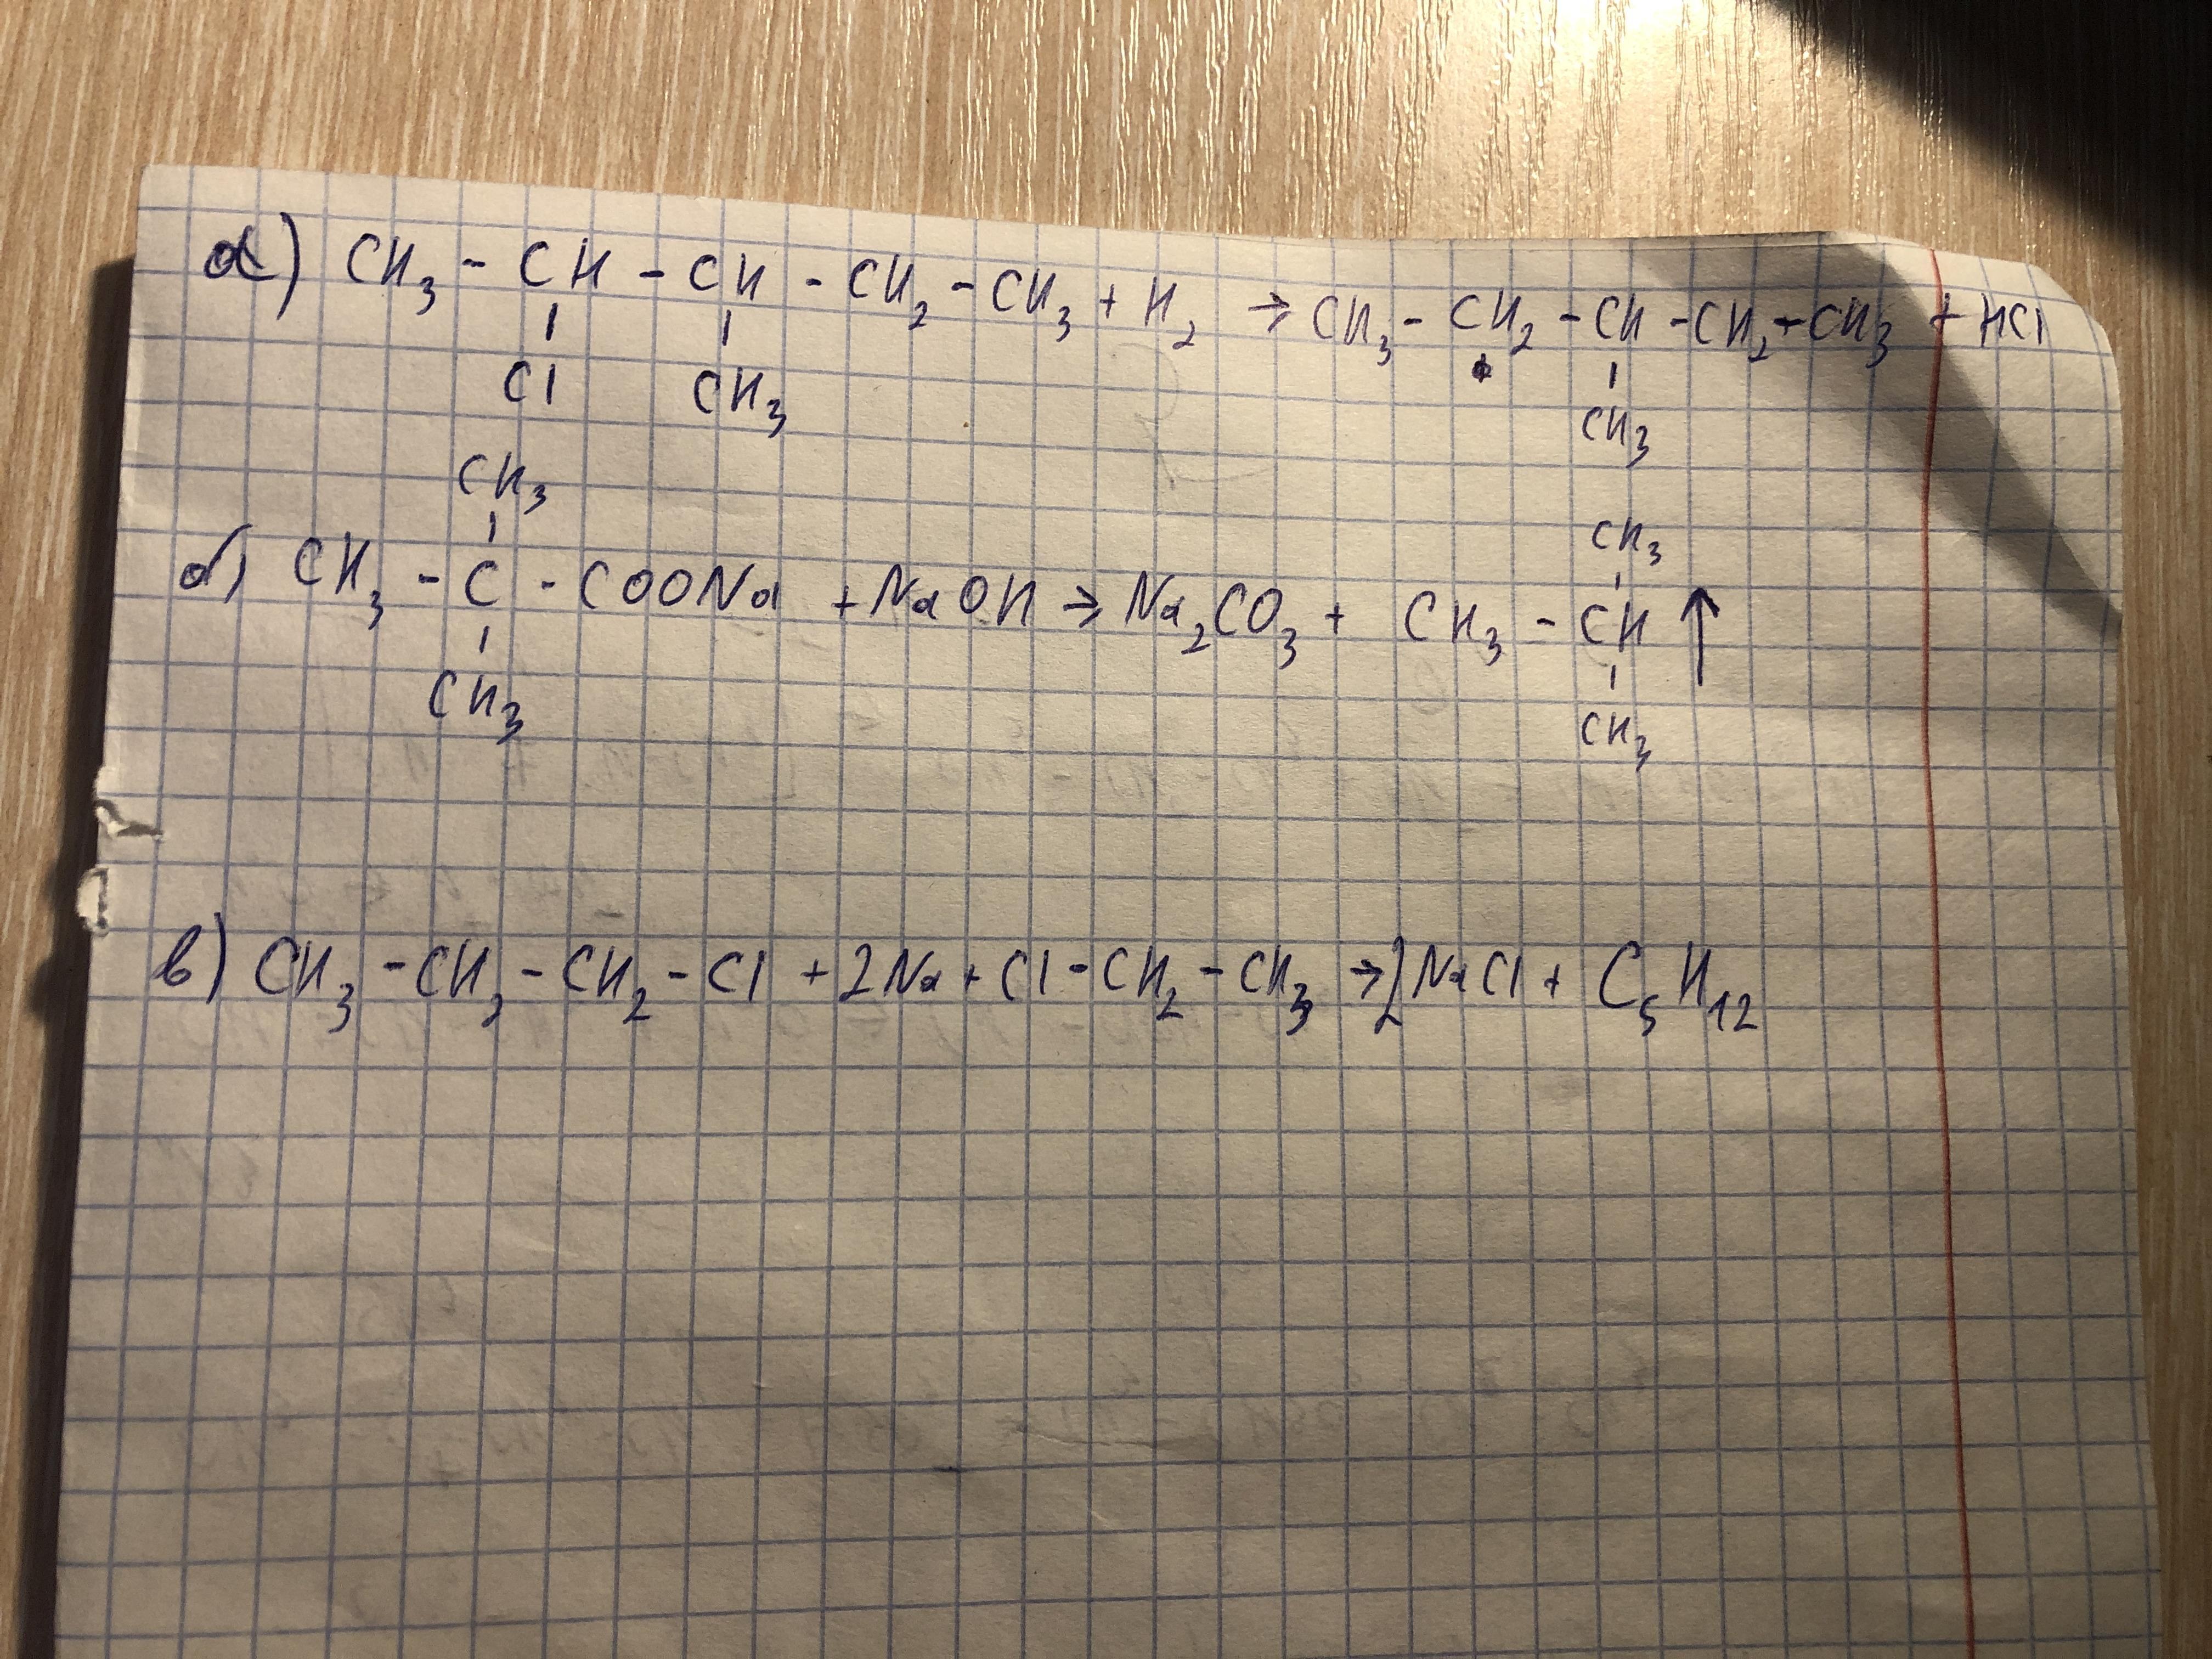 а) CH₃ - CH - CH - CH₂ - CH₃ + H₂ → CH₃ - CH₂ - CH - CH₂ - CH₃ + HCl
Cl CH₃ CH₃
CH₃ CH₃
б) CH₃ - C - COONa + NaOH → Na₂CO₃ + CH₃ - CH ↑
CH₃ CH₃
в) CH₃ - CH₂ - CH₂ - Cl + 2Na + Cl - CH₂ - CH₃ → 2NaCl + C₅H₁₂